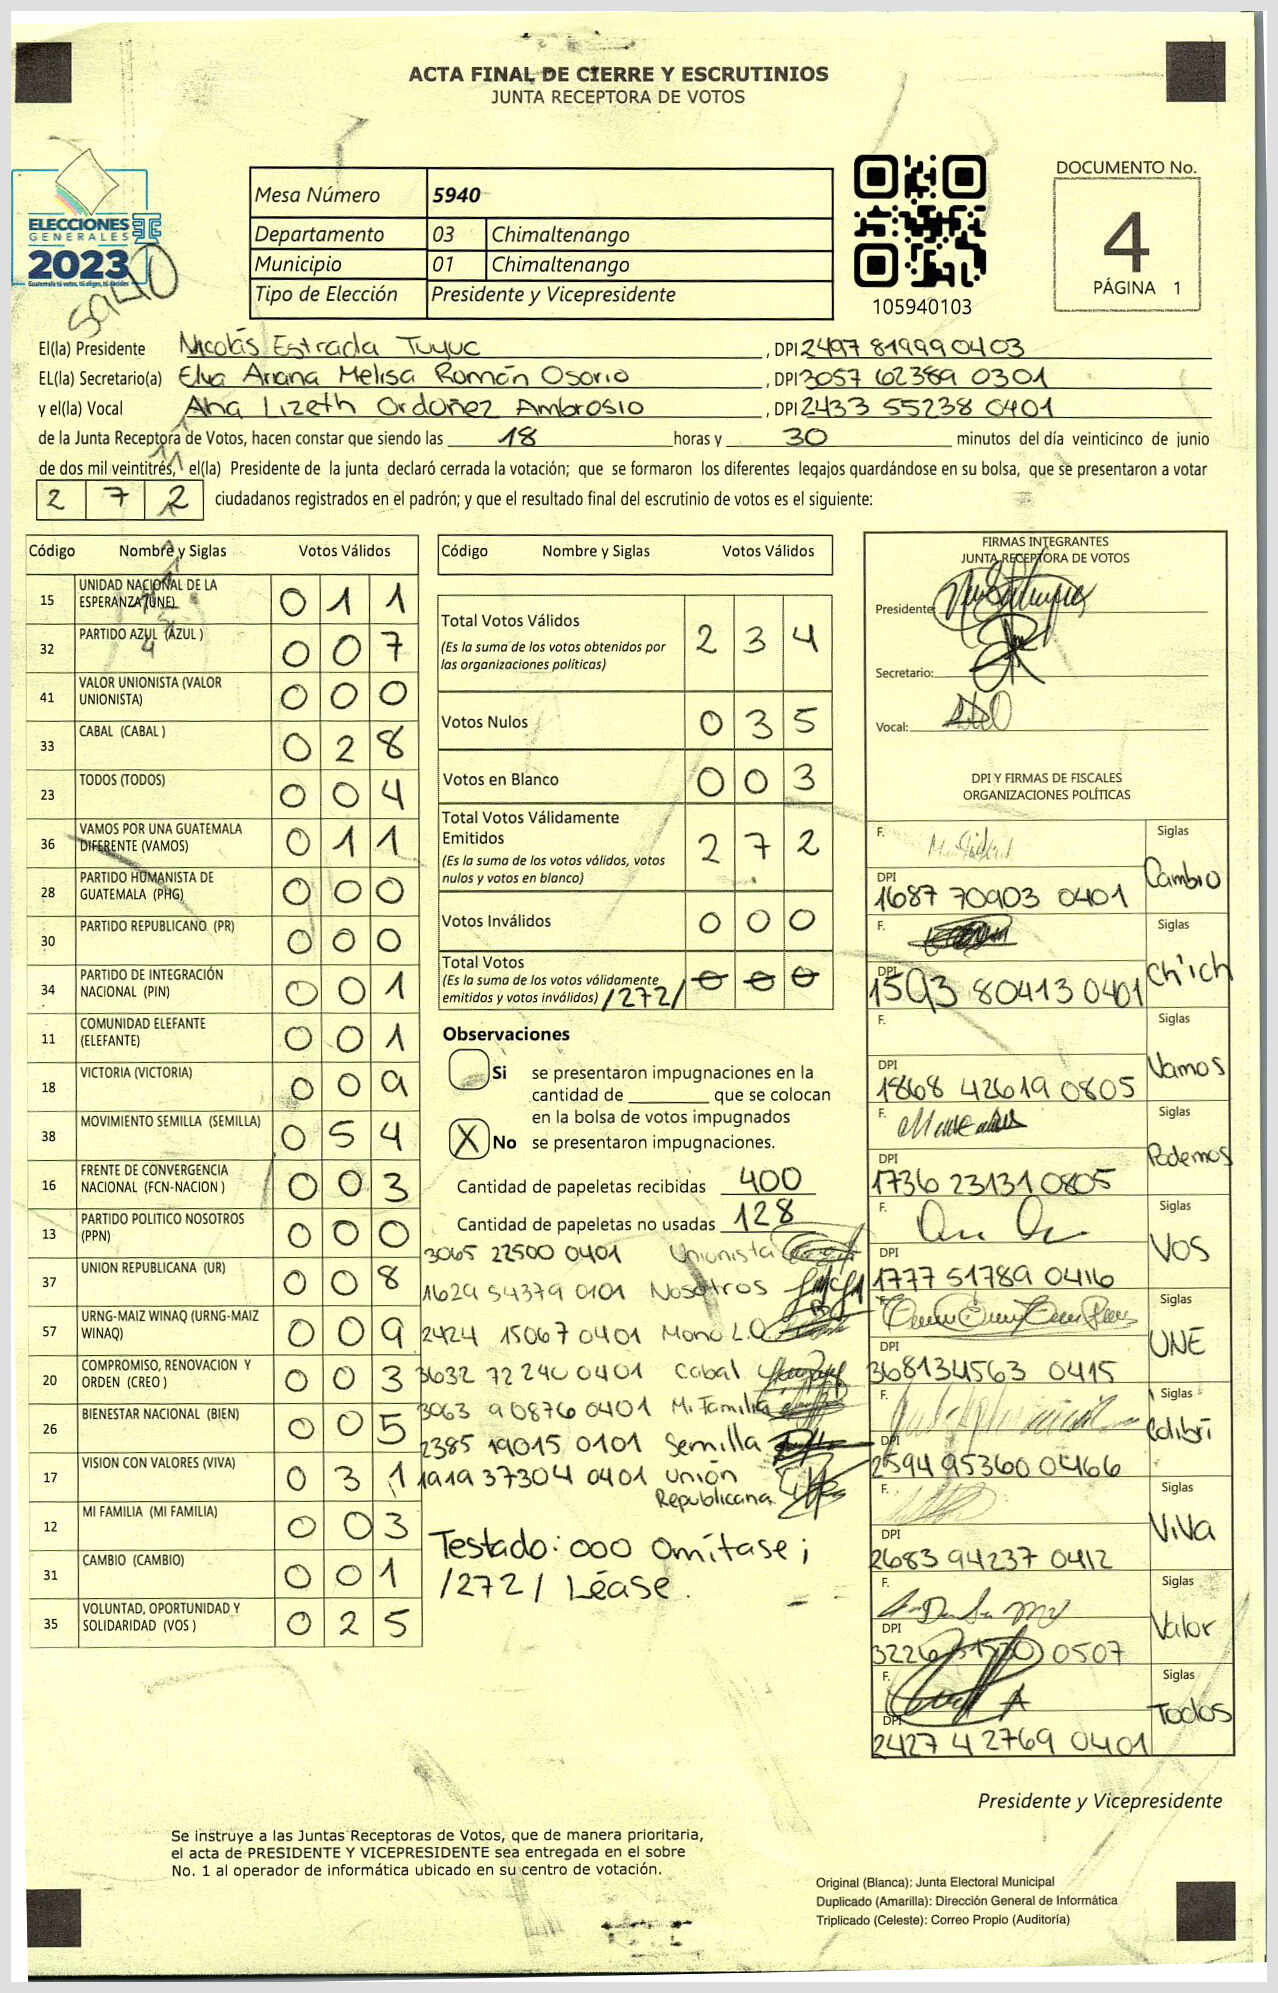 ACTA FINAL DE CIERRE Y ESCRUTINIOS
JUNTA RECEPTORA DE VOTOS
ELECCIONES
GENERALES
2023
Guatemala tú votas, tú eliges, tú decides
5940
Mesa Número 5940
Departamento 03 Chimaltenango
Municipio 01 Chimaltenango
Tipo de Elección Presidente y Vicepresidente
105940103
DOCUMENTO No.
4
PÁGINA 1
El(la) Presidente Nicolás Estrada Tuyuc, DPI 2497 81999 0403
EL(la) Secretario(a) Elva Ariana Melisa Román Osorio, DPI 3057 62389 0301
y el(la) Vocal Ana Lizeth Ordoñez Ambrosio, DPI 2433 55238 0401
de la Junta Receptora de Votos, hacen constar que siendo las 18 horas y 30 minutos del día veinticinco de junio
de dos mil veintitrés, el(la) Presidente de la junta declaró cerrada la votación; que se formaron los diferentes legajos quardándose en su bolsa, que se presentaron a votar
2 7 2 ciudadanos registrados en el padrón; y que el resultado final del escrutinio de votos es el siguiente:
Código Nombre y Siglas Votos Válidos
15 UNIDAD NACIONAL DE LA ESPERANZA (UNE) 0 1 1
32 PARTIDO AZUL (AZUL ) 0 0 7
41 VALOR UNIONISTA (VALOR UNIONISTA) 0 0 0
33 CABAL (CABAL ) 0 2 8
23 TODOS (TODOS) 0 0 4
36 VAMOS POR UNA GUATEMALA DIFERENTE (VAMOS) 0 1 1
28 PARTIDO HUMANISTA DE GUATEMALA (PHG) 0 0 0
30 PARTIDO REPUBLICANO (PR) 0 0 0
34 PARTIDO DE INTEGRACIÓN NACIONAL (PIN) 0 0 1
11 COMUNIDAD ELEFANTE (ELEFANTE) 0 0 1
18 VICTORIA (VICTORIA) 0 0 9
38 MOVIMIENTO SEMILLA (SEMILLA) 0 5 4
16 FRENTE DE CONVERGENCIA NACIONAL (FCN-NACION ) 0 0 3
13 PARTIDO POLITICO NOSOTROS (PPN) 0 0 0
37 UNION REPUBLICANA (UR) 0 0 8
57 URNG-MAIZ WINAQ (URNG-MAIZ WINAQ) 0 0 9
20 COMPROMISO, RENOVACION Y ORDEN (CREO ) 0 0 3
26 BIENESTAR NACIONAL (BIEN) 0 0 5
17 VISION CON VALORES (VIVA) 0 3 1
12 MI FAMILIA (MI FAMILIA) 0 0 3
31 CAMBIO (CAMBIO) 0 0 1
35 VOLUNTAD, OPORTUNIDAD Y SOLIDARIDAD (VOS ) 0 2 5
Código Nombre y Siglas Votos Válidos
Total Votos Válidos 2 3 4
(Es la suma de los votos obtenidos por las organizaciones políticas)
Votos Nulos 0 3 5
Votos en Blanco 0 0 3
Total Votos Válidamente Emitidos 2 7 2
(Es la suma de los votos válidos, votos nulos y votos en blanco)
Votos Inválidos 0 0 0
Total Votos 0 0 0
(Es la suma de los votos válidamente emitidos y votos inválidos) /272/
Observaciones
Si se presentaron impugnaciones en la
cantidad de ________ que se colocan
en la bolsa de votos impugnados
X No se presentaron impugnaciones.
Cantidad de papeletas recibidas 400
Cantidad de papeletas no usadas 128
3065 22500 0401 Unionista
1629 54379 0101 Nosotros
2424 15067 0401 Mono L.O
3632 72240 0401 Cabal
3063 90876 0401 Mi Familia
2385 19015 0101 Semilla
1919 37304 0401 Unión
Republicana
Testado: 000 Omítase;
/272/ Léase.
FIRMAS INTEGRANTES
JUNTA RECEPTORA DE VOTOS
Presidente:
Secretario:
Vocal:
DPI Y FIRMAS DE FISCALES
ORGANIZACIONES POLÍTICAS
F. Siglas
DPI 1687 70903 0401 Cambio
F. Siglas
DPI 1593 80413 0401 Ch'ich
F. Siglas
DPI 1868 42619 0805 Vamos
F. Siglas
DPI 1736 23131 0805 Podemos
F. Siglas
DPI 1777 51789 0416 VOS
F. Siglas
DPI 3681 34563 0415 UNE
F. Siglas
DPI 2594 95360 0466 Colibrí
F. Siglas
DPI 2683 94237 0412 ViVa
F. Siglas
DPI 0507 Valor
F. Siglas
DPI 2427 42769 0401 Todos
Presidente y Vicepresidente
Se instruye a las Juntas Receptoras de Votos, que de manera prioritaria,
el acta de PRESIDENTE Y VICEPRESIDENTE sea entregada en el sobre
No. 1 al operador de informática ubicado en su centro de votación.
Original (Blanca): Junta Electoral Municipal
Duplicado (Amarilla): Dirección General de Informática
Triplicado (Celeste): Correo Propio (Auditoría)